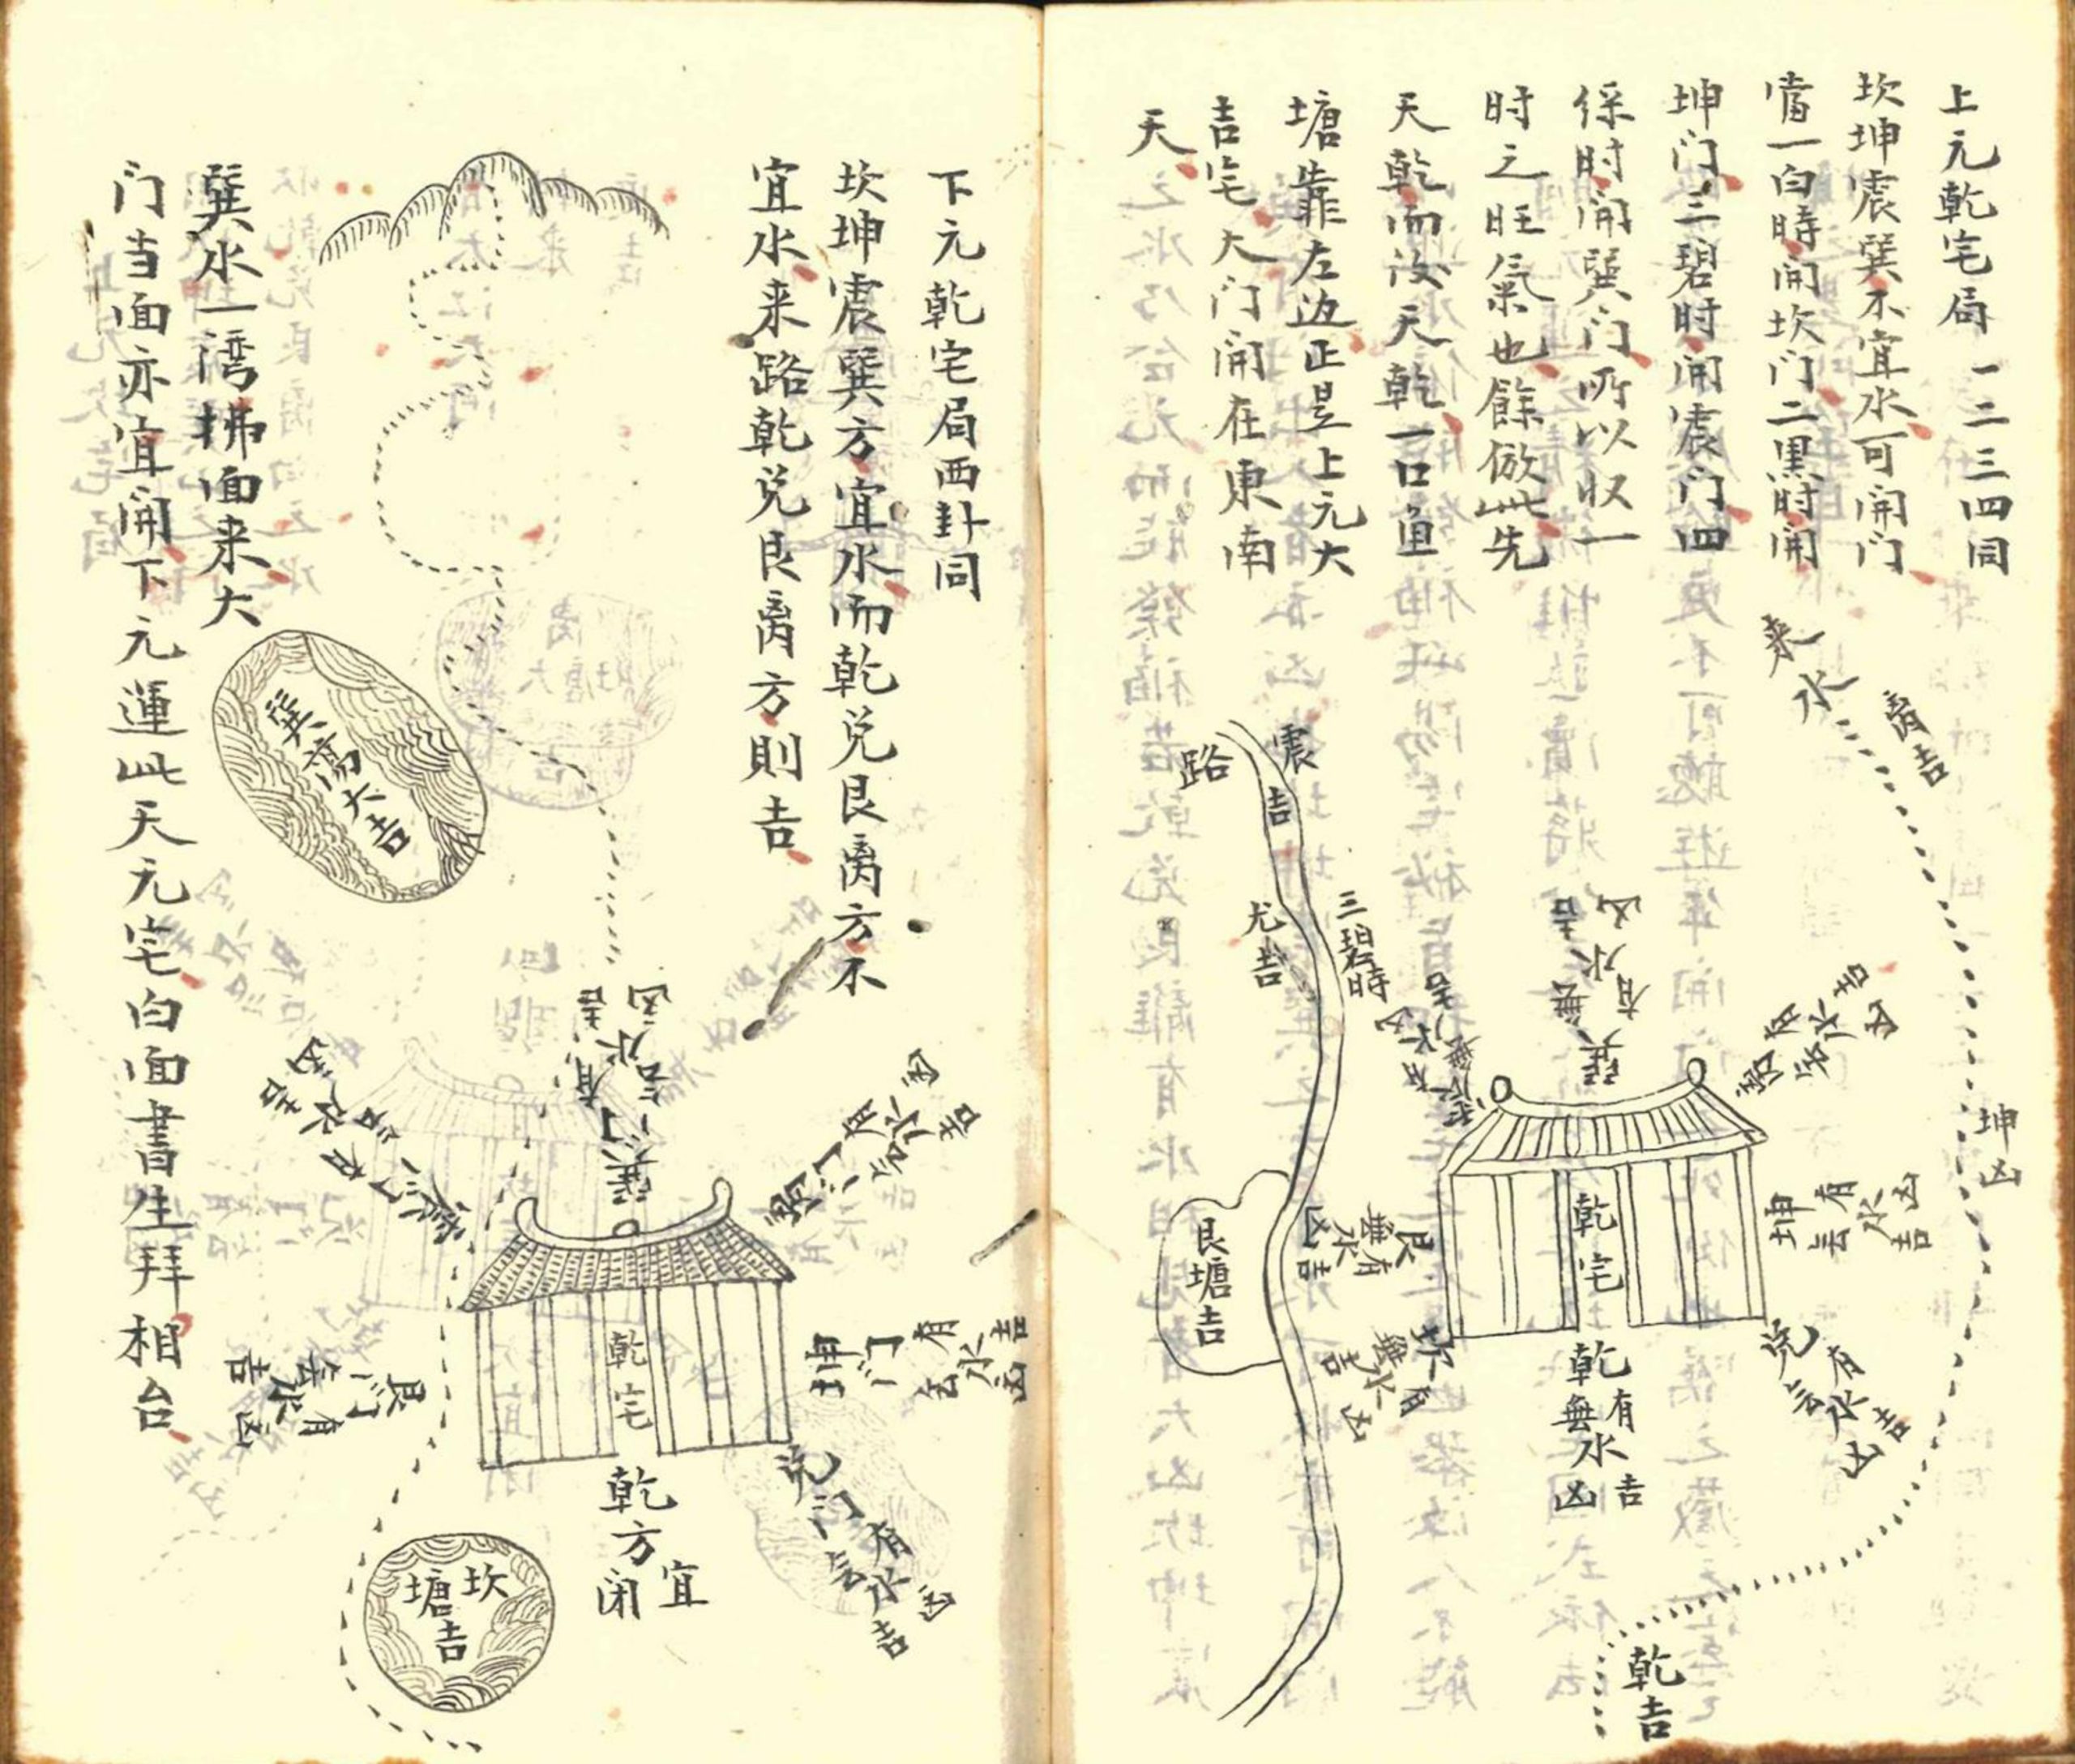 上元乾宅局一二三四同
坎坤震巽不宜水可開门
當一白時開坎门二黑时開
坤门三碧时開震门四
綠时開巽门所以收一
时之旺氣也餘倣此先
天乾而汝天乾一口鱼
塘靠左边正是上元大
吉宅大门開在東南
天
来水
离吉
坤凶
乾吉
路
震吉
尤吉
三碧時
艮塘吉
乾宅
巽有水凶無吉
坤有水凶
吉
兑有水吉
艮有水吉
無凶
坎有水凶
無吉
乾有水吉
無凶
下元乾宅局四卦同
坎坤震巽方宜水而乾兑艮离方不
宜水来路乾兑艮离方則吉
巽水一湾拂面来大
门当面亦宜開下元運此天元宅白面書生拜相台
巽塘大吉
乾宅
巽门有水吉
凶
坤门有水吉
凶
兑门有水凶
吉
艮门有水凶
吉
乾方宜闭
坎塘吉